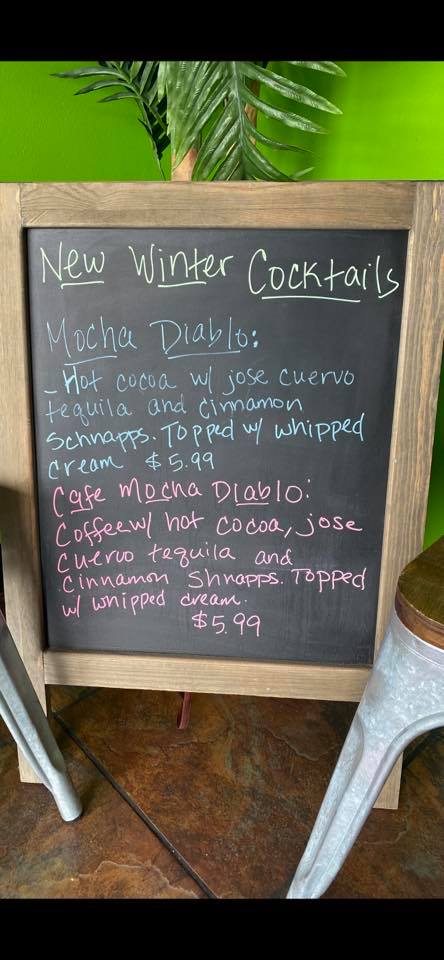 New Winter Cocktails
Mocha Diablo:
- Hot cocoa w/ jose cuervo
tequila and cinnamon
Schnapps. Topped w/ whipped
cream $5.99
Cafe Mocha Diablo:
Coffee w/ hot cocoa, jose
Cuervo tequila and
Cinnamon Shnapps. Topped
w/ whipped cream.
$5.99